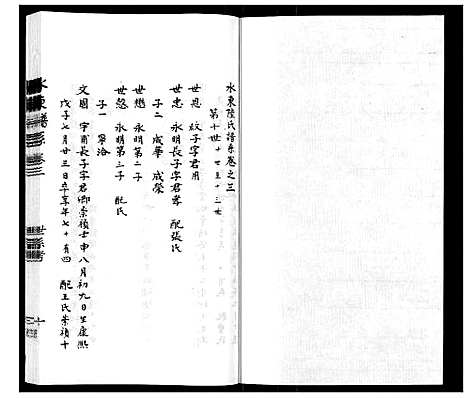 水東陸氏譜系卷之三
第十世 十一世至十三世
世恩 啟子字君用
世忠 永明長子字君孝 配張氏
子二 成華 成榮
世懋 永明第二子
世慤 永明第三子 配氏
子一 寧洛
文園 字甫長子字君卿崇禎壬申八月初九日生康熙
戊子七月廿三日卒享年七十有四 配王氏崇禎十
水東譜系 卷三
世系考
三十